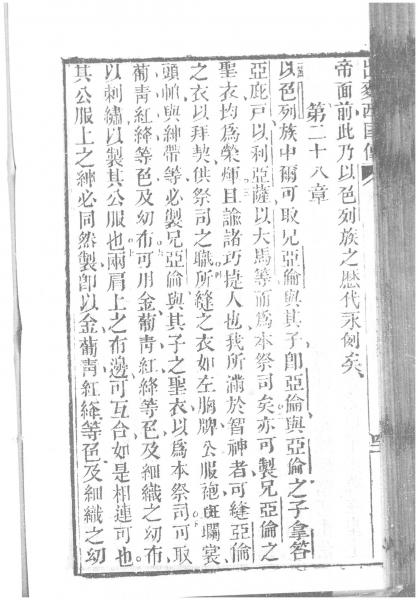 出麥西國傳
帝面前此乃以色列族之歷代永例矣
第二十八章
以色列族中爾可取兄亞倫與其子卽亞倫與亞倫之子拿答
亞庇戸以利亞薩以大馬等而爲本祭司矣亦可製兄亞倫之
聖衣均爲榮煇且諭諸巧捷人也我所滿於智神者可縫亞倫
之衣以拜契供祭司之職所縫之衣如左胸牌公服袍斑斕裳
頭帕與紳帶等必製兄亞倫與其子之聖衣以爲本祭司可取
葡靑紅絳等色及幼布可用金葡靑紅絳等色及細織之幼布
以刺繡以製其公服也兩肩上之布邊可互合如是相連可也
其公服上之紳必同然製卽以金葡靑紅絳等色及細織之幼